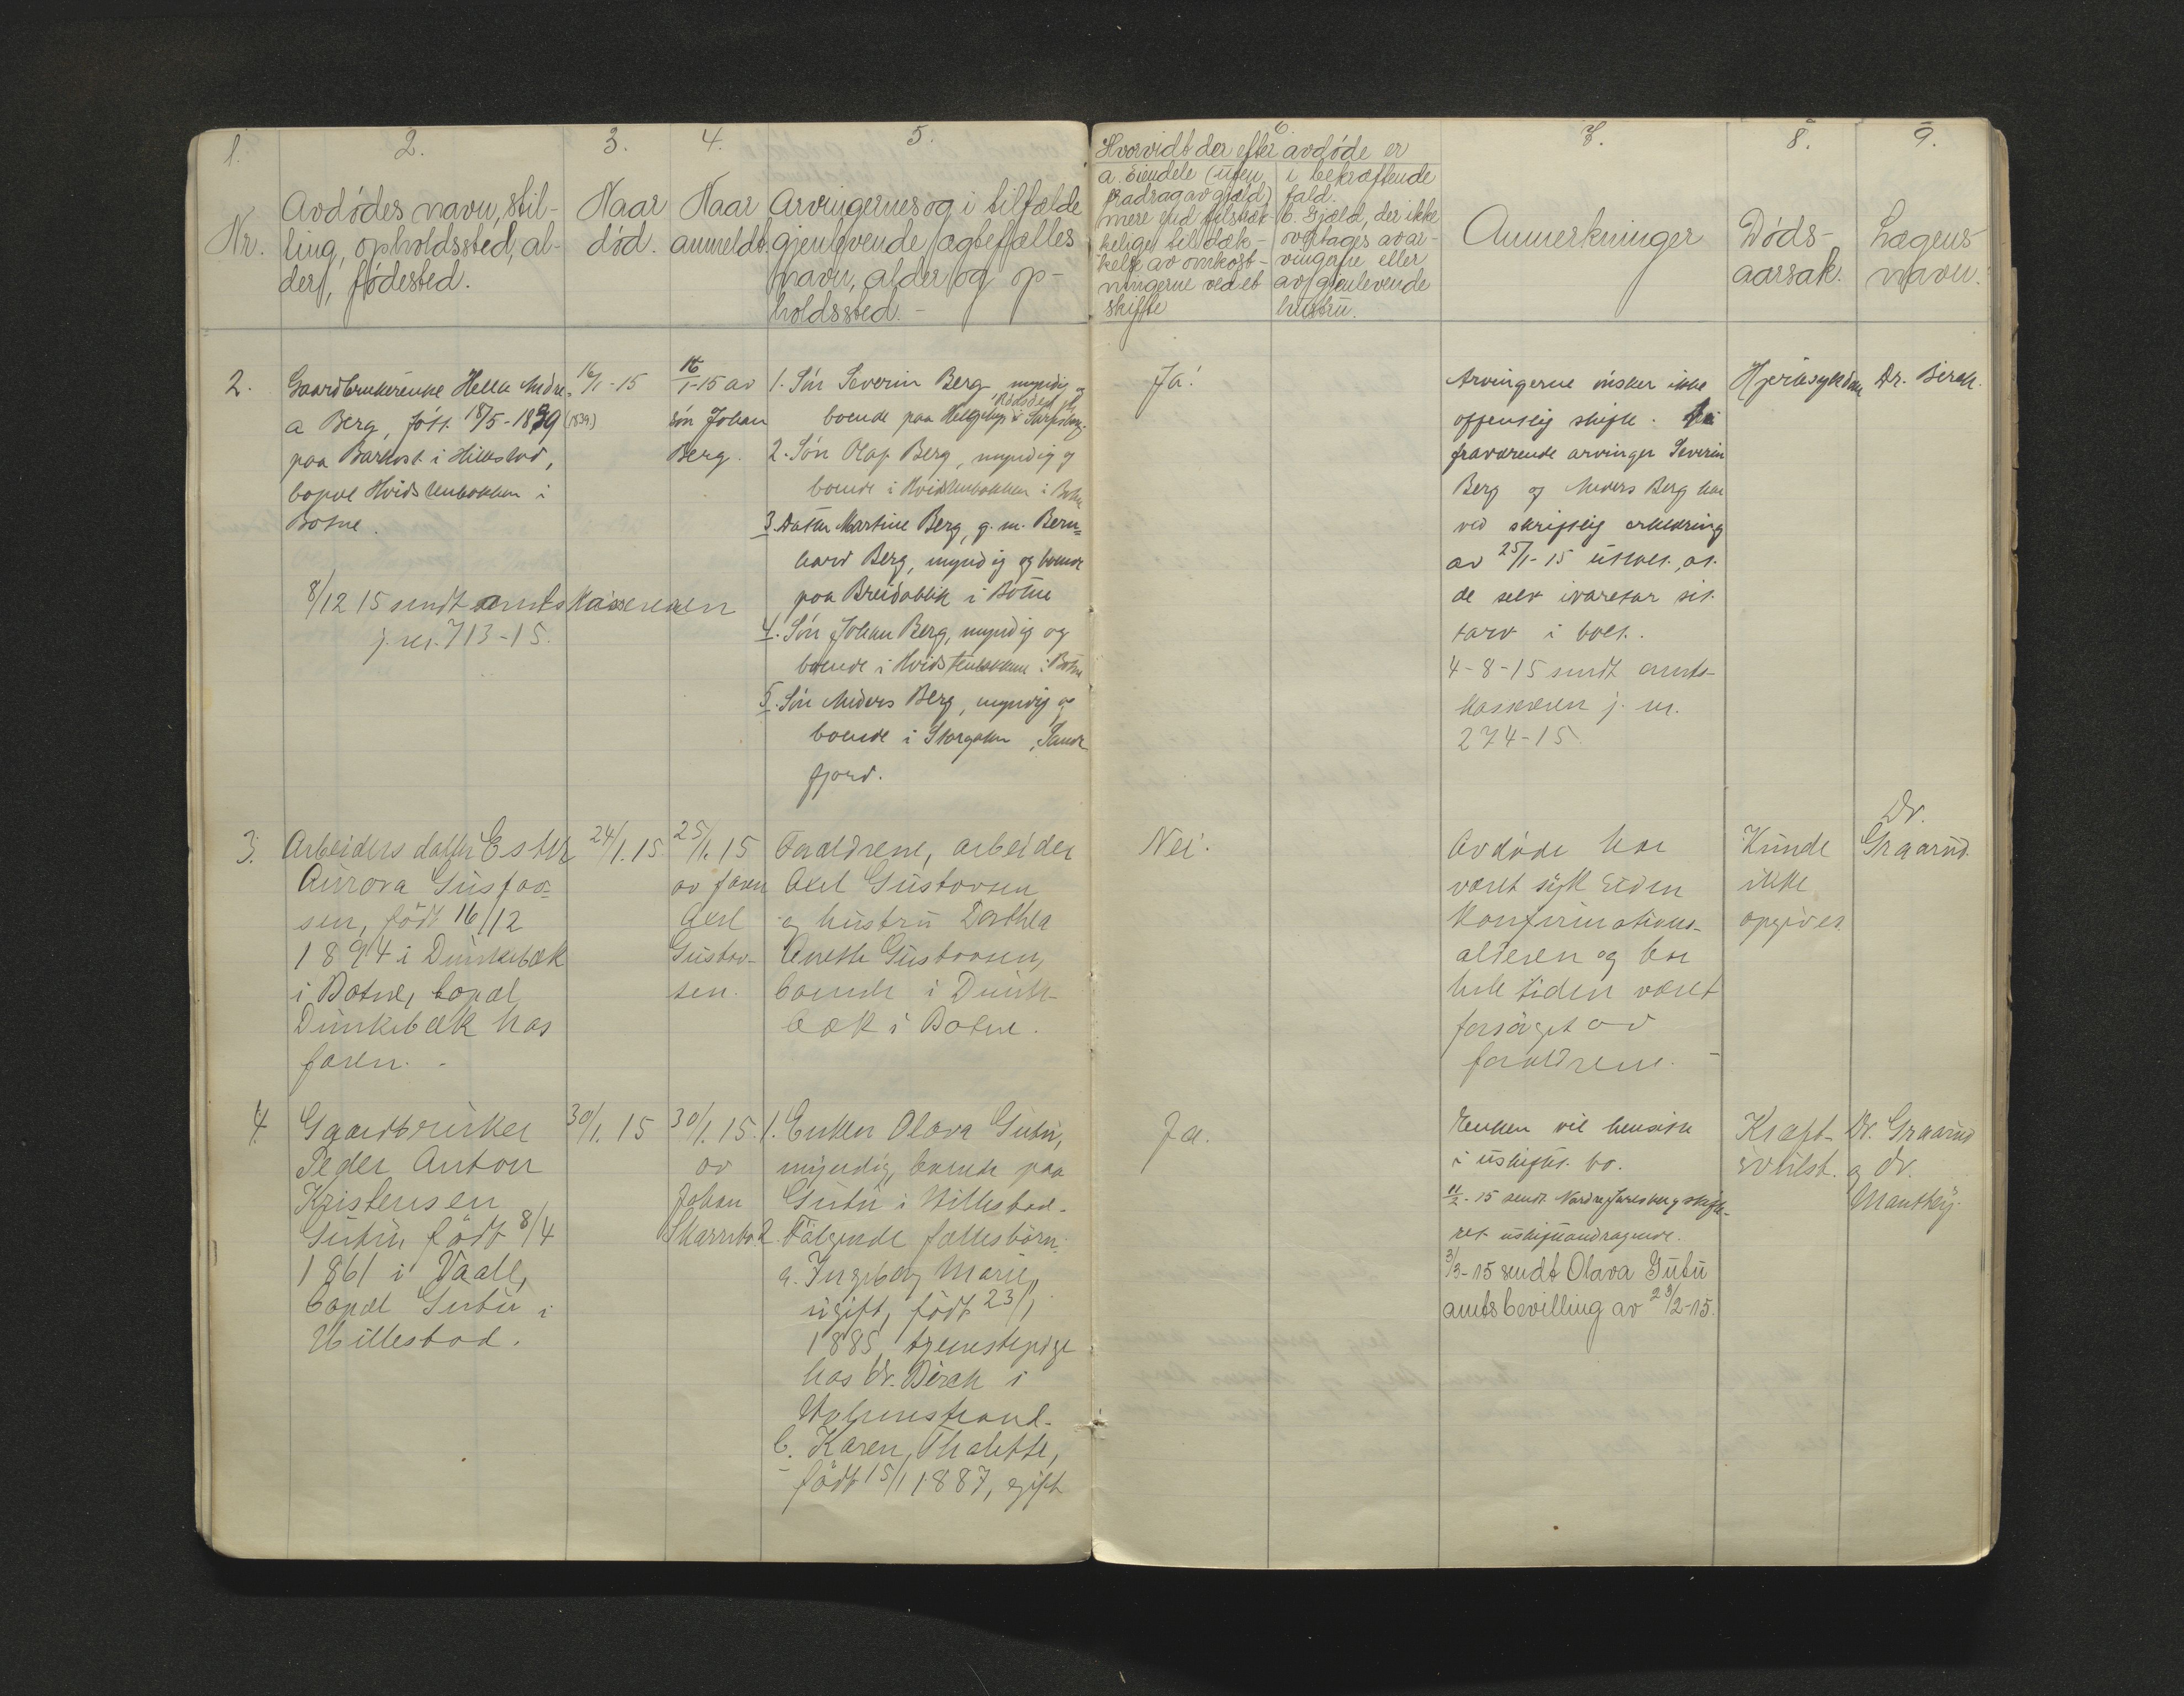 1.
2.
3.
4.
5.
6
7.
8.
9.
Nr.
Avdødes navn, stil-
ling, opholdssted, al-
der, fødested.
Naar
død.
Naar
anmeldt.
Arvingernes og i tilfælde
gjenlevende ægtefælles
navn, alder og op-
holdssted. -
Hvorvidt der efter avdøde er
a. Eiendele (uten
fradrag av gjæld)
mere end tilstræk-
kelige til dæk-
kelse av omkost-
ningerne ved et
skifte
i bekræftende
fald.
b. Gjæld, der ikke
overtages av ar-
vingerne eller
av gjenlevende
hustru.
Anmerkninger
Døds-
aarsak.
Lægens
navn.
2.
Gaardbrukerenke Helle Andre-
a Berg, født 18/5-1839 (1839)
paa Barkost i Hillestad,
bopæl Hvidstenbakken i
Botne.
8/12 15 sendt amtskassereren
j. nr. 713-15.
16/1-15
16/1-15 av
søn Johan
Berg.
1. Søn Severin Berg, myndig og
boende paa Helgeby i Sarpsborg.
2. Søn Olaf Berg, myndig og
boende i Hvidstenbakken i Botne
3. Datter Martine Berg, g. m. Bern-
hard Berg, myndig og boende
paa Breidablik i Botne
4. Søn Johan Berg, myndig og
boende i Hvidstenbakken i Botne
5. Søn Anders Berg, myndig og
boende i Storgaten, Sande-
fjord.
Ja!
Arvingerne ønsker ikke
offentlig skifte. De
fraværende arvinger Severin
Berg og Anders Berg har
ved skriftlig erklæring
av 25/1-15 uttalt, at
de selv ivaretar sit
tarv i boet.
4-8-15 sendt amts-
kassereren j. nr.
274-15.
Hjertesykdom
Dr. Birch.
3.
Arbeiders datter Ester
Aurora Gustav-
sen, født 16/12
1894 i Dunkebæk
i Botne, bopæl
Dunkebæk hos
faren. -
24/1.15
25/1.15
av faren
Axel
Gustav-
sen.
Foreldrene, arbeider
Axel Gustavsen
og hustru Dorthea
Anette Gustavsen,
boende i Dunke-
bæk i Botne.
Nei.
Avdøde har
været syk siden
konfirmations-
alderen og har
hele tiden været
forsørget av
foreldrene. -
Kunde
ikke
opgives.
Dr.
Graarud.
4.
Gaardbruker
Peder Anton
Kristensen
Gutu, født 8/4
1861 i Vaale,
bopæl Gutu i
Hillestad.
30/1.15
30/1.15.
av
Johan
Skarrebo
1. Enken Olava Gutu,
myndig, boende paa
Gutu i Hillestad.
2. Følgende fællesbørn:
a. Ingeborg Marie,
ugift, født 23/1
1885, tjenestepige
hos Dr. Birch i
Holmestrand.
b. Karen Thalette,
født 15/1 1887, gift
Ja.
Enken vil hensitte
i uskiftet bo.
11/2-15 sendt Nordre Jarlsberg skifte-
ret uskifteandragende.
3/3-15 sendt Olava Gutu
amtsbevilling av 23/2-15.
Kræft-
svulst.
Dr. Graarud
og dr.
Manthey.